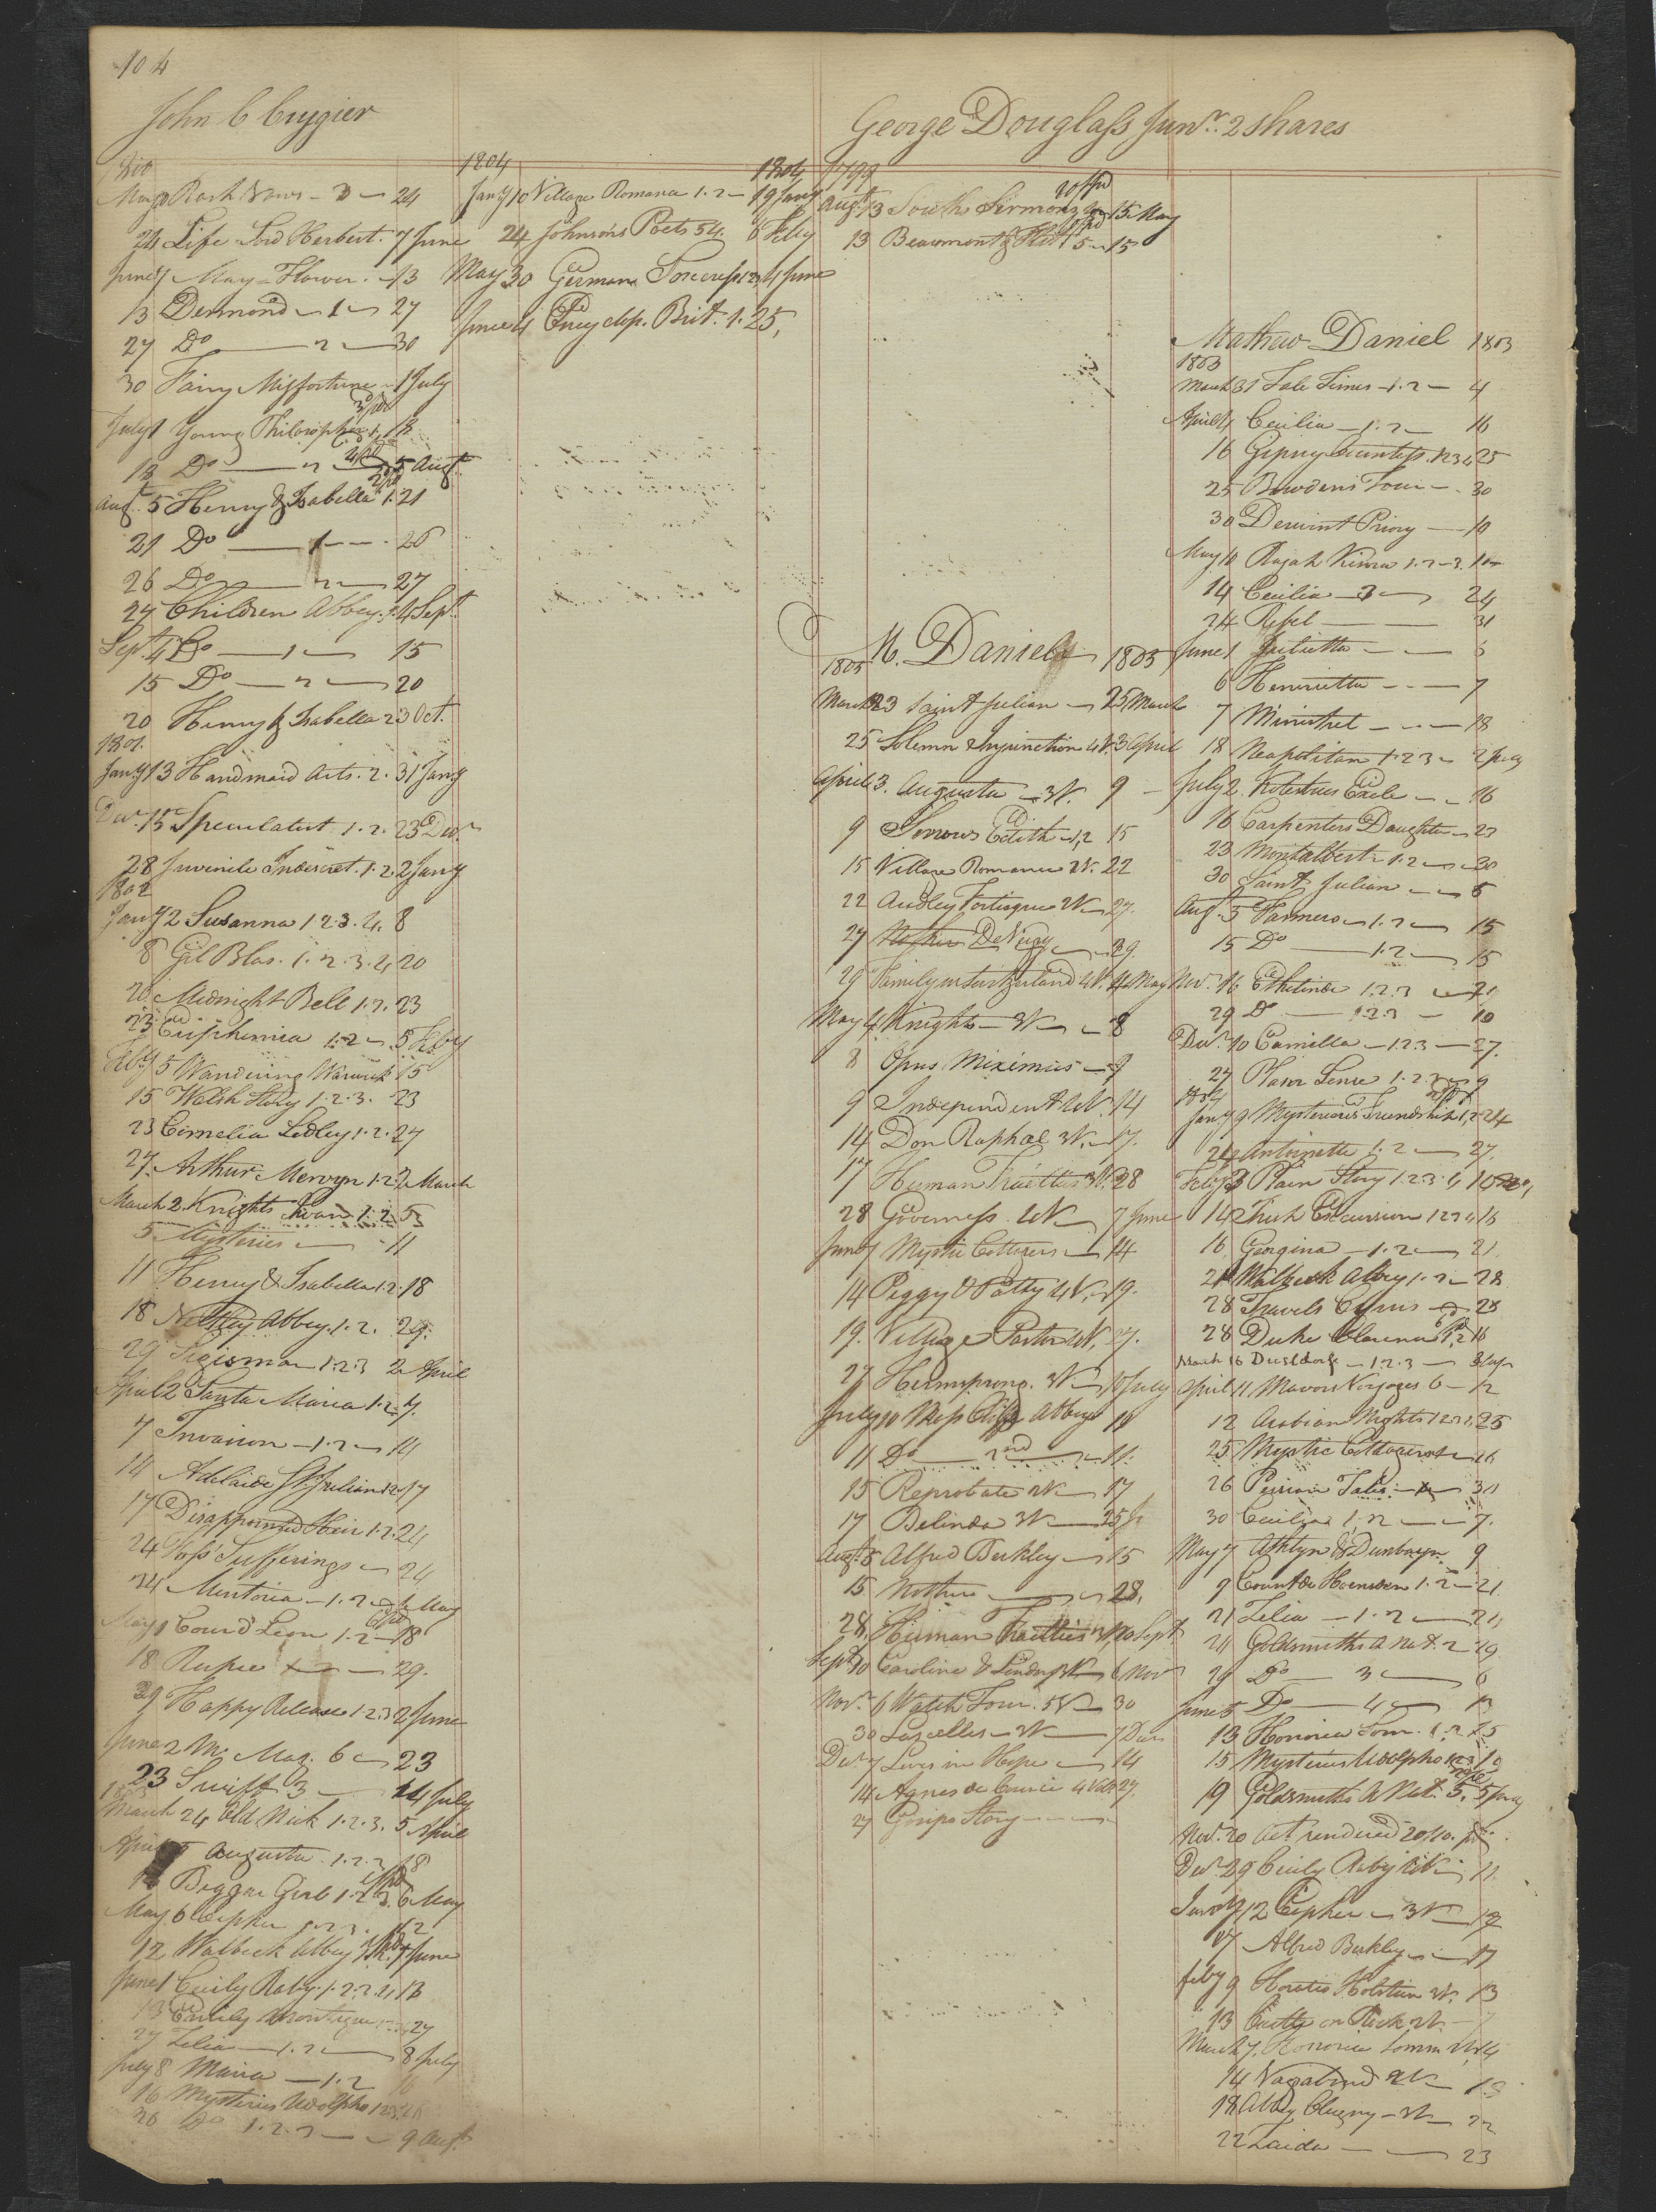 104
John C Cuyгier
1800
May 9 Rash Vows - 3 - 24
24 Life Lord Herbert. 7 June
June 7 May-Flower. - 13
13 Desmond - 1 - 27
27 Do - 2 - 30
30 Fairy Misfortune - 1 July
July 1 Young Philosopher 1, 18
18 Do - 2 - 5 Augt
Augt 5 Henry & Isabella 1. 21
21 Do - 1 - 26
26 Do - 2 - 27
27 Children Abbey. 1. 4 Sept
Sept 4 Do - 1 - 15
15 Do - 2 - 20
20 Henry & Isabella 2 3 Oct.
1801.
Jany 13 Handmaid Arts. 2. 31 Jany
Decr 15 Speculatist 1.2. 23 Decr
28 Juvenile Indiscret. 1.2 2 Jany
1802
Jany 2 Susanna 1 2.3.4. 8
8 Gil Blas. 1.2.3.4 20
20 Midnight Bell 1.2. 23
23 Euphemia 1.2 - 5 Feby
Feby 5 Wandering Warwick 15
15 Walsh Story 1.2.3. 23
23 Cornelia Sedley 1.2. 27
27. Arthur Mervyn 1.2. 2 March
March 2. Knights Swan 1.2. 5
5 Mysteries - 11
11 Henry & Isabella 1.2. 18
18 Netley Abbey. 1.2. 29.
29 Sigismar 1.2.3 2 April
April 2 Santa Maria 1.2. 7.
7 Invasion - 1.2 - 14
14 Adelaide St. Julian 1 2. 17
17 Disappointed Heir 1.2. 24
24 Voss' Sufferings - 24
24 Mentoria - 1.2 - 1 May
May 1 Coeur d Leon 1.2 - 18
18 Rupee - 29.
29 Happy Release 1.2.3 2 June
June 2 M. Mag. 6 - 23
23 Swift 3 - 14 July
1803
March 24 Old Nick 1.2.3. 5 April
April 5 Augusta. 1.2.3 18
18 Beggar Girl 1.2.3. 6 May
May 6 Cepher 1.2.3. 12
12 Walbeck Abbey 1 June
June 1 Cecily Raby. 1.2.3.4 13
13 Emily Montague 27
27 Zelia - 1.2 - 8 July
July 8 Maria - 1.2 16
16 Mysteries Udolpho 1 2 3. 26
26 Do 1.2.3 - 9 Augt
1804
1804
Jany 10 Village Romance 1.2 - 19 Jany
24 Johnson's Poets 54. 6 Feby
May 30 German Sorceress 1 2 3 4 June
June 4 Encyclop. Brit. 1. 25,
George Douglass Junr. 2 shares
1799
Augt 13 South's Sermons 15 May
13 Beaumont & Flet 5 - 15
M. Daniel 1805
1805
March 23 Saint Julian - 25 March
25 Solemn Injunction 4 V. 3 April
April 3. Augusta - 3 V. 9 -
9 Sorrows Edith - 1,2 15
15 Village Romance 2 V. 22
22 Audley Fortisque 2 V - 27.
27 DeVicey - 29.
29 Family in Switzerland 4 V. 4 May
May 4. Knights - 3 V - 8
8 Opus Miximus - 9
9 Independent 2 V. 14
14 Don Raphael 3 V. - 17.
17 Human Frailties 3 V. 28
28 Governess. 2 V - 7 June
June 7 Mystic Cottagers - 14
14 Peggy & Patty 4 V. - 19.
19. Village Pastor 2 V. 27.
27 Hermsprong. 3 V - 10 July
July 10 Mrs Cliff Abbey 11
11 Do - 2nd - 11.
15 Reprobate 2 V - 17
17 Belinda 3 V - 25
Augt 8 Alfred Berkley - 15
15 Mother - 28,
28. Human Frailties 10 Sept.
Sept 10 Caroline & Lindorf 3 V - 6 Nov
Novr 6 Walsh Tour. 5 V - 30
30 Lascelles - 3 V - 7 Decr
Decr 7 Lives in Hope - 14
14 Agnes de Courci 4 Vols 27.
27 Gossips Story -
Mathew Daniel 1803
1803
March 31 Tale Times - 1.2 - 4
April 4 Cecilia - 1.2 - 16
16 Gipsey Countess. 1 2 3 4 25
25 Bowdens Tour - 30
30 Derwint Priory - 10
May 10 Rajah Kisna 1.2-3. 14
14 Cecilia - 3 - 24
24 Ressel - 31
June 1 Julietta - 6
6 Henrietta - 7
7 Minstrel - 18
18 Neapolitan 1.2 3 - 2 July
July 2. Kotzebues Exile - 16
16 Carpenters Daughter - 23
23 Montalbert - 1.2 - 30
30 Saint Julian - 5
Augt 5 Farmers - 1.2 - 15
15 Do - 1.2 - 15
Nov. 16 Ethelinde 1.2.3 - 21
29 Do - 1.2 3 - 10
Decr. 10 Camilla - 1.2.3 - 27.
27 Plain Sense 1.2.3 - 9
1804
Jany 9 Mysterious Friendship 1,2 24
24 Antoinette 1.2 - 27.
Feby 3 Plain Story 1.2.3.4 14
14 Irish Excursion 1 2 3 4 16
16 Georgina - 1.2 - 21.
21 Walbeck Abbey 1.2 - 28
28 Travels Cyrus - 28
28 Duke Clarence 1,2 16
March 16 Dusseldorf - 1.2.3 -
April 11 Mavors Voyages 6 - 12
12 Arabian Nights 1 2 3 4 25
25 Mystic Cottagers - 26
26 Persian Tales - 30
30 Cecilia 1.2 - 7.
May 7 Athlyn & Dunbayn. 9
9 Count de Hoensden 1.2 - 21
21 Zelia - 1.2 - 24
24 Goldsmiths A Nat. 2 29
29 Do - 3 - 6
June 5 Do - 4 - 13
13 Honoria Som. 1.2 15
15 Mysteries Udolpho 1 2 3 19
19 Goldsmiths A Nat. 5. 5 July
Novr. 20 Act rendered 20/10.
Decr. 29 Cecily Raby 4 V - 11.
Jany 12 Cepher - 3 V - 17
17 Alfred Berkley - 17
feby 9 Horatio Holstein 3 V. 13
13 Castle on Rock 3 V - 7
March 7. Honoria Somm 2 V. 14
14 Vagabond 2 V - 18
18 Abbey Clugny - 3 V - 22
22 Zaida - 23